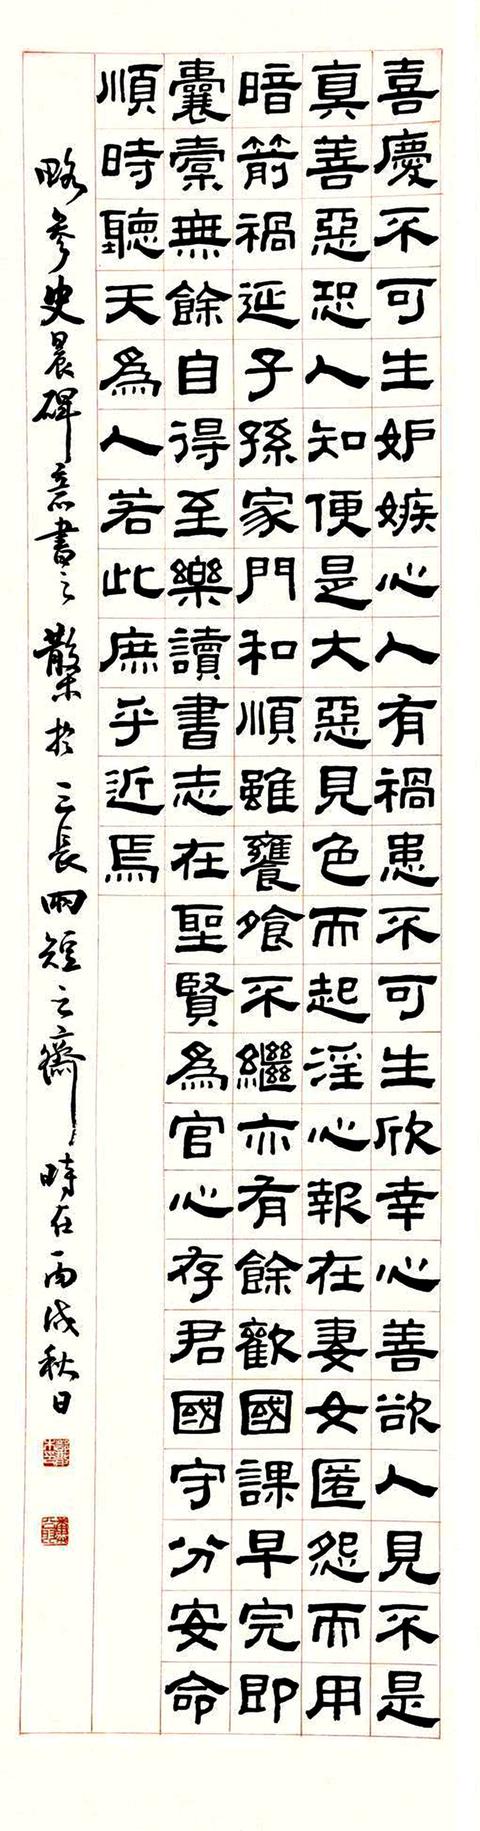 喜慶不可生妒嫉心人有禍患不可生欣幸心善欲人見不是
真善惡恐人知便是大惡見色而起淫心報在妻女匿怨而用
暗箭禍延子孫家門和順雖饔飧不繼亦有餘歡國課早完即
囊橐無餘自得至樂讀書志在聖賢為官心存君國守分安命
順時聽天為人若此庶乎近焉
略參史晨碑意書之 槃於三長兩短之齋 時在丙戌秋日